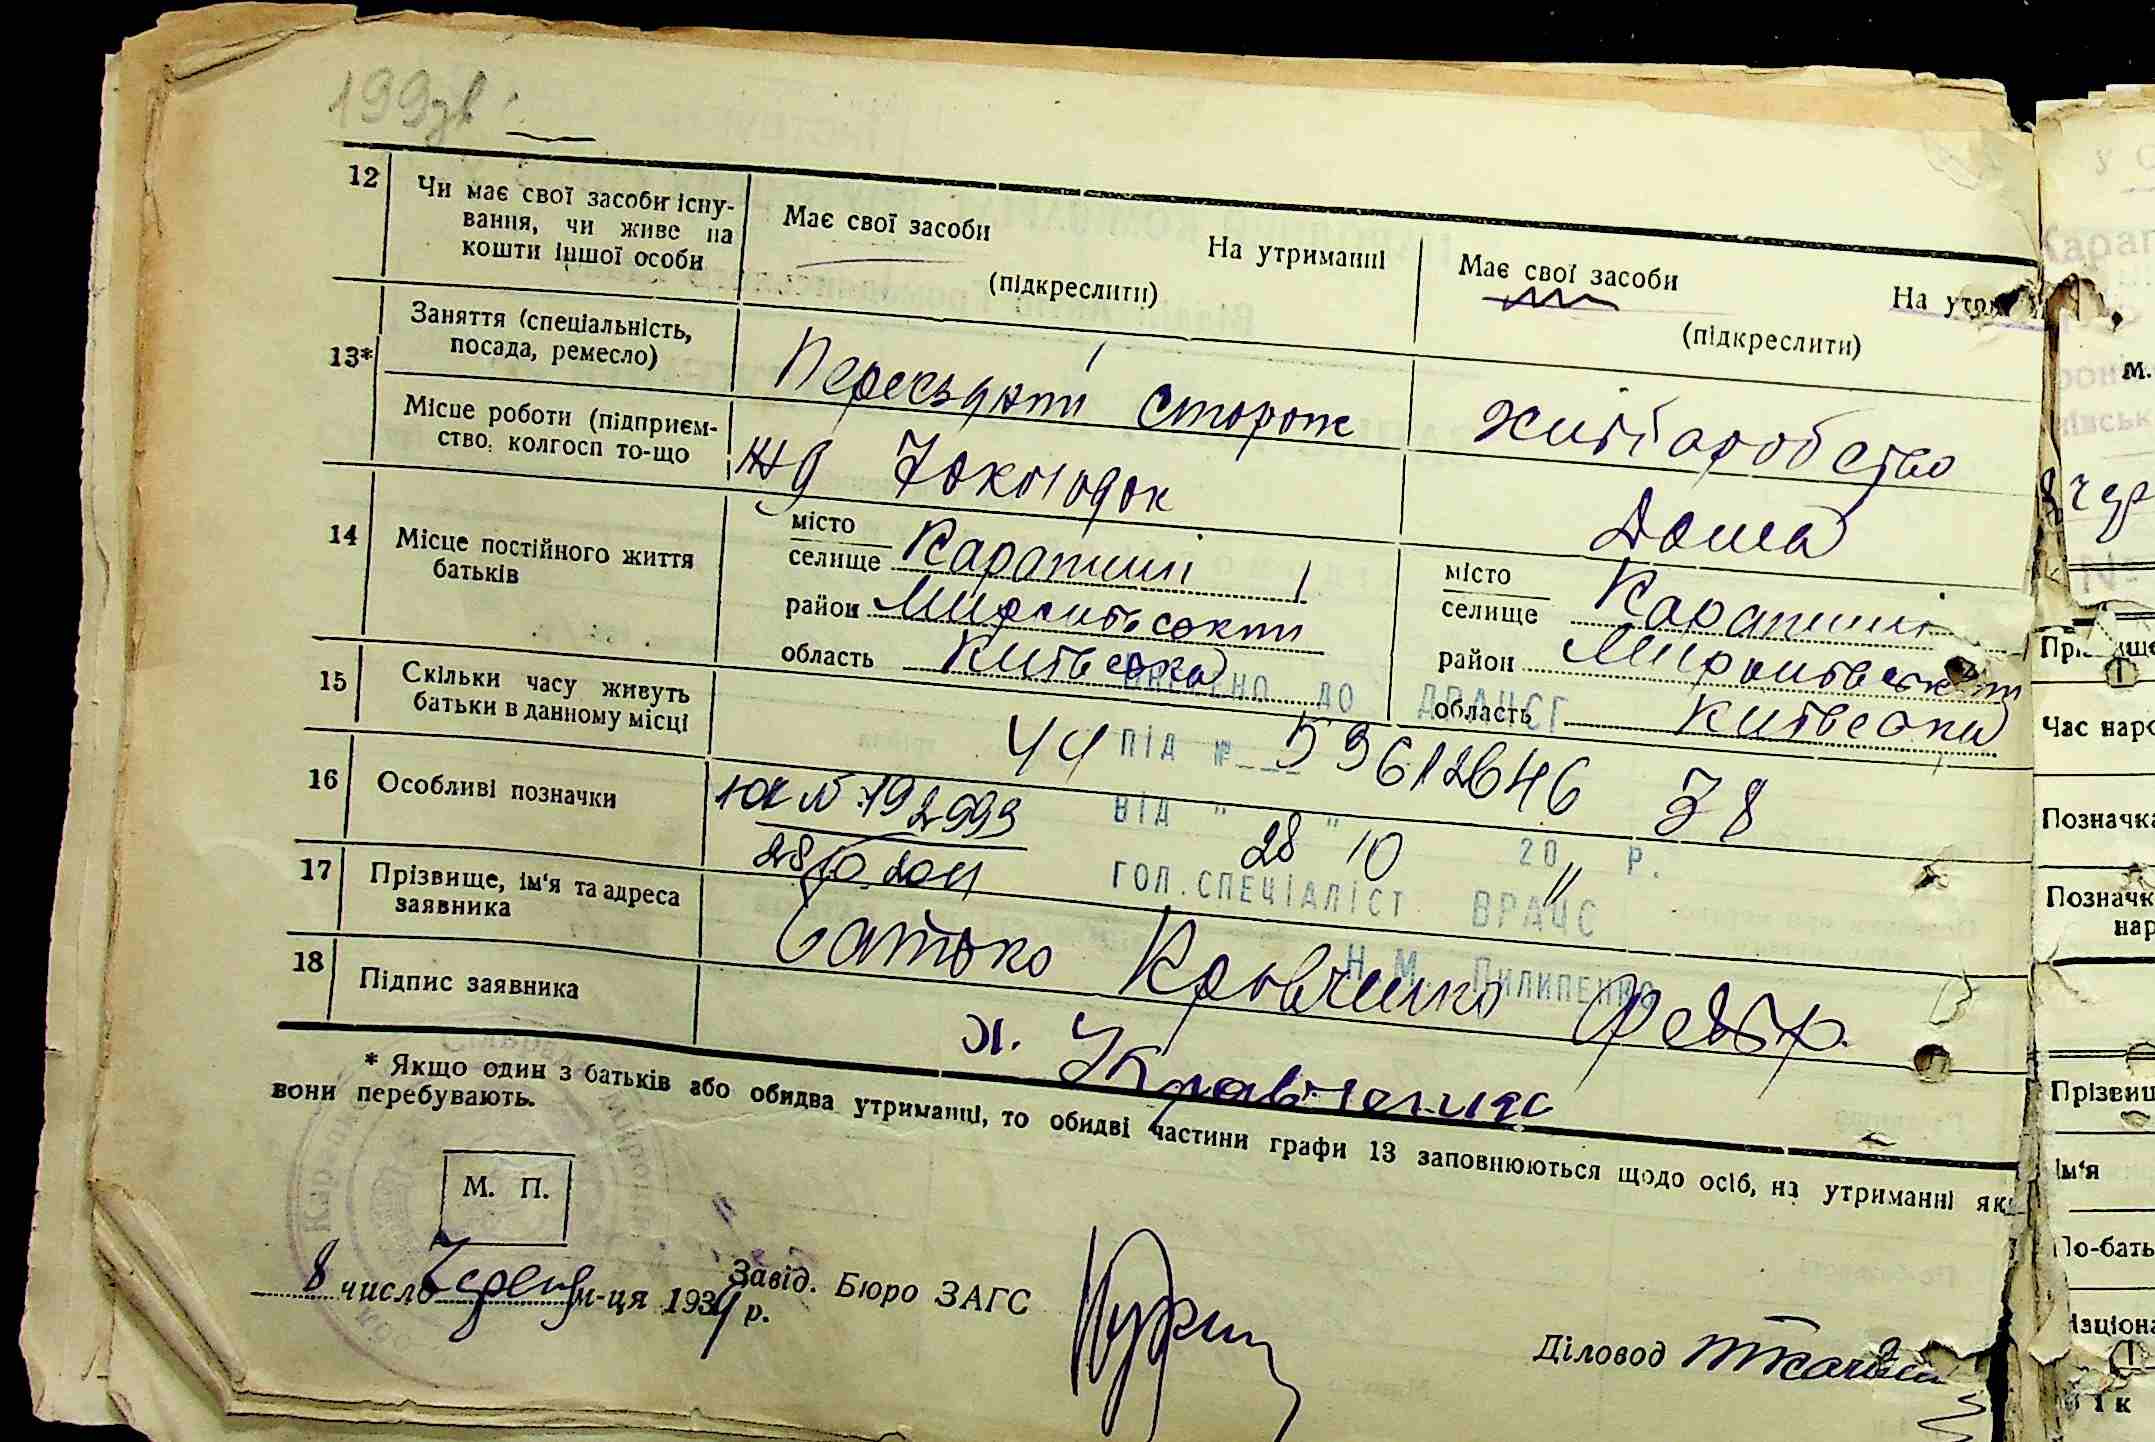 199зв
12 Чи має свої засоби існу-
вання, чи живе на
кошти іншої особи
Має свої засоби На утриманні
(підкреслити)
Має свої засоби На утрим
(підкреслити)
13* Заняття (спеціальність,
посада, ремесло)
сторож
Місце роботи (підприєм-
ство, колгосп то-що
жд
Дома
14 Місце постійного життя
батьків
місто
селище Карапиші
район Миронівський
область Київська
місто
селище Карапиші
район Миронівський
область Київська
15 Скільки часу живуть
батьки в данному місці
44
38
16 Особливі позначки
№ 192999
28/10.2011
ВНЕСЕНО ДО ДРАЦСГ
ПІД № 59612646
ВІД " 28 " 10 20 11 Р.
ГОЛ.СПЕЦІАЛІСТ ВРАЦС
Н М Пилипенко
17 Прізвище, ім'я та адреса
заявника
Батько Кравченко
18 Підпис заявника
Х. Кравченко
* Якщо один з батьків або обидва утриманці, то обидві частини графи 13 заповнюються щодо осіб, на утриманні яки
вони перебувають.
М. П.
8 число Червня м-ця 1939 р.
Завід. Бюро ЗАГС
Діловод
Карап
м.
Час наро
Позначка
Позначк
нар
Прізвищ
Ім'я
По-бать
Націона